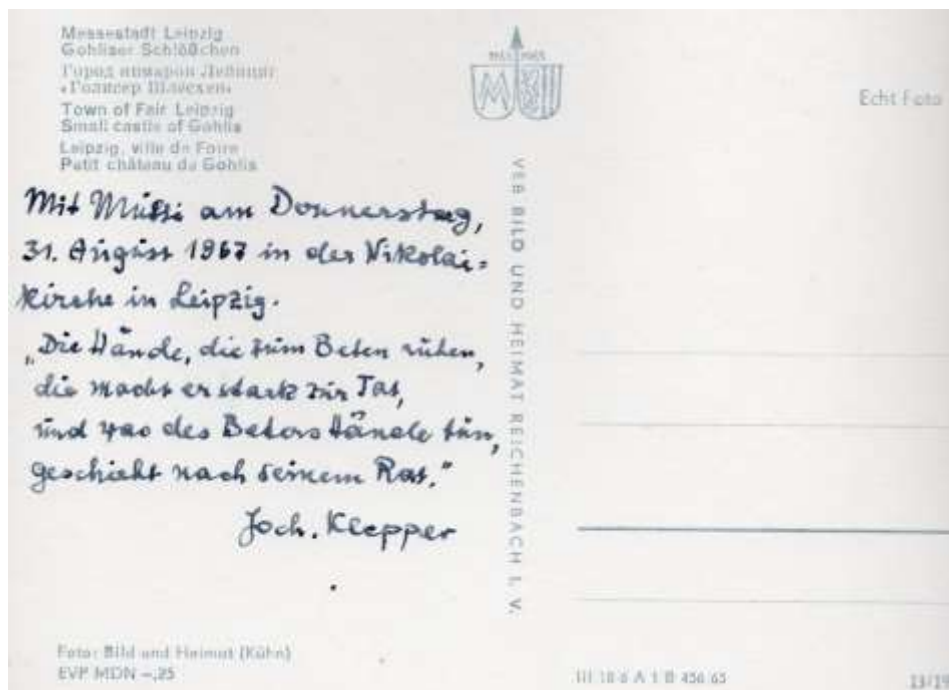 Messestadt Leipzig
Gohliser Schlößchen
Город ярмарок Лейпциг
«Голисер Шлёсхен»
Town of Fair Leipzig
Small castle of Gohlis
Leipzig, ville de Foire
Petit château de Gohlis
M
Echt Foto
Mit Mutti am Donnerstag,
31. August 1967 in der Nikolai-
kirche in Leipzig.
„Die Hände, die zum Beten ruhen,
die macht er stark zur Tat,
und was des Beters Hände tun,
geschieht nach seinem Rat."
Joch. Klepper
VEB BILD UND HEIMAT REICHENBACH I. V.
Foto: Bild und Heimat (Kühn)
EVP MDN –,25
III 18 6 A 1 B 456 65
13/19